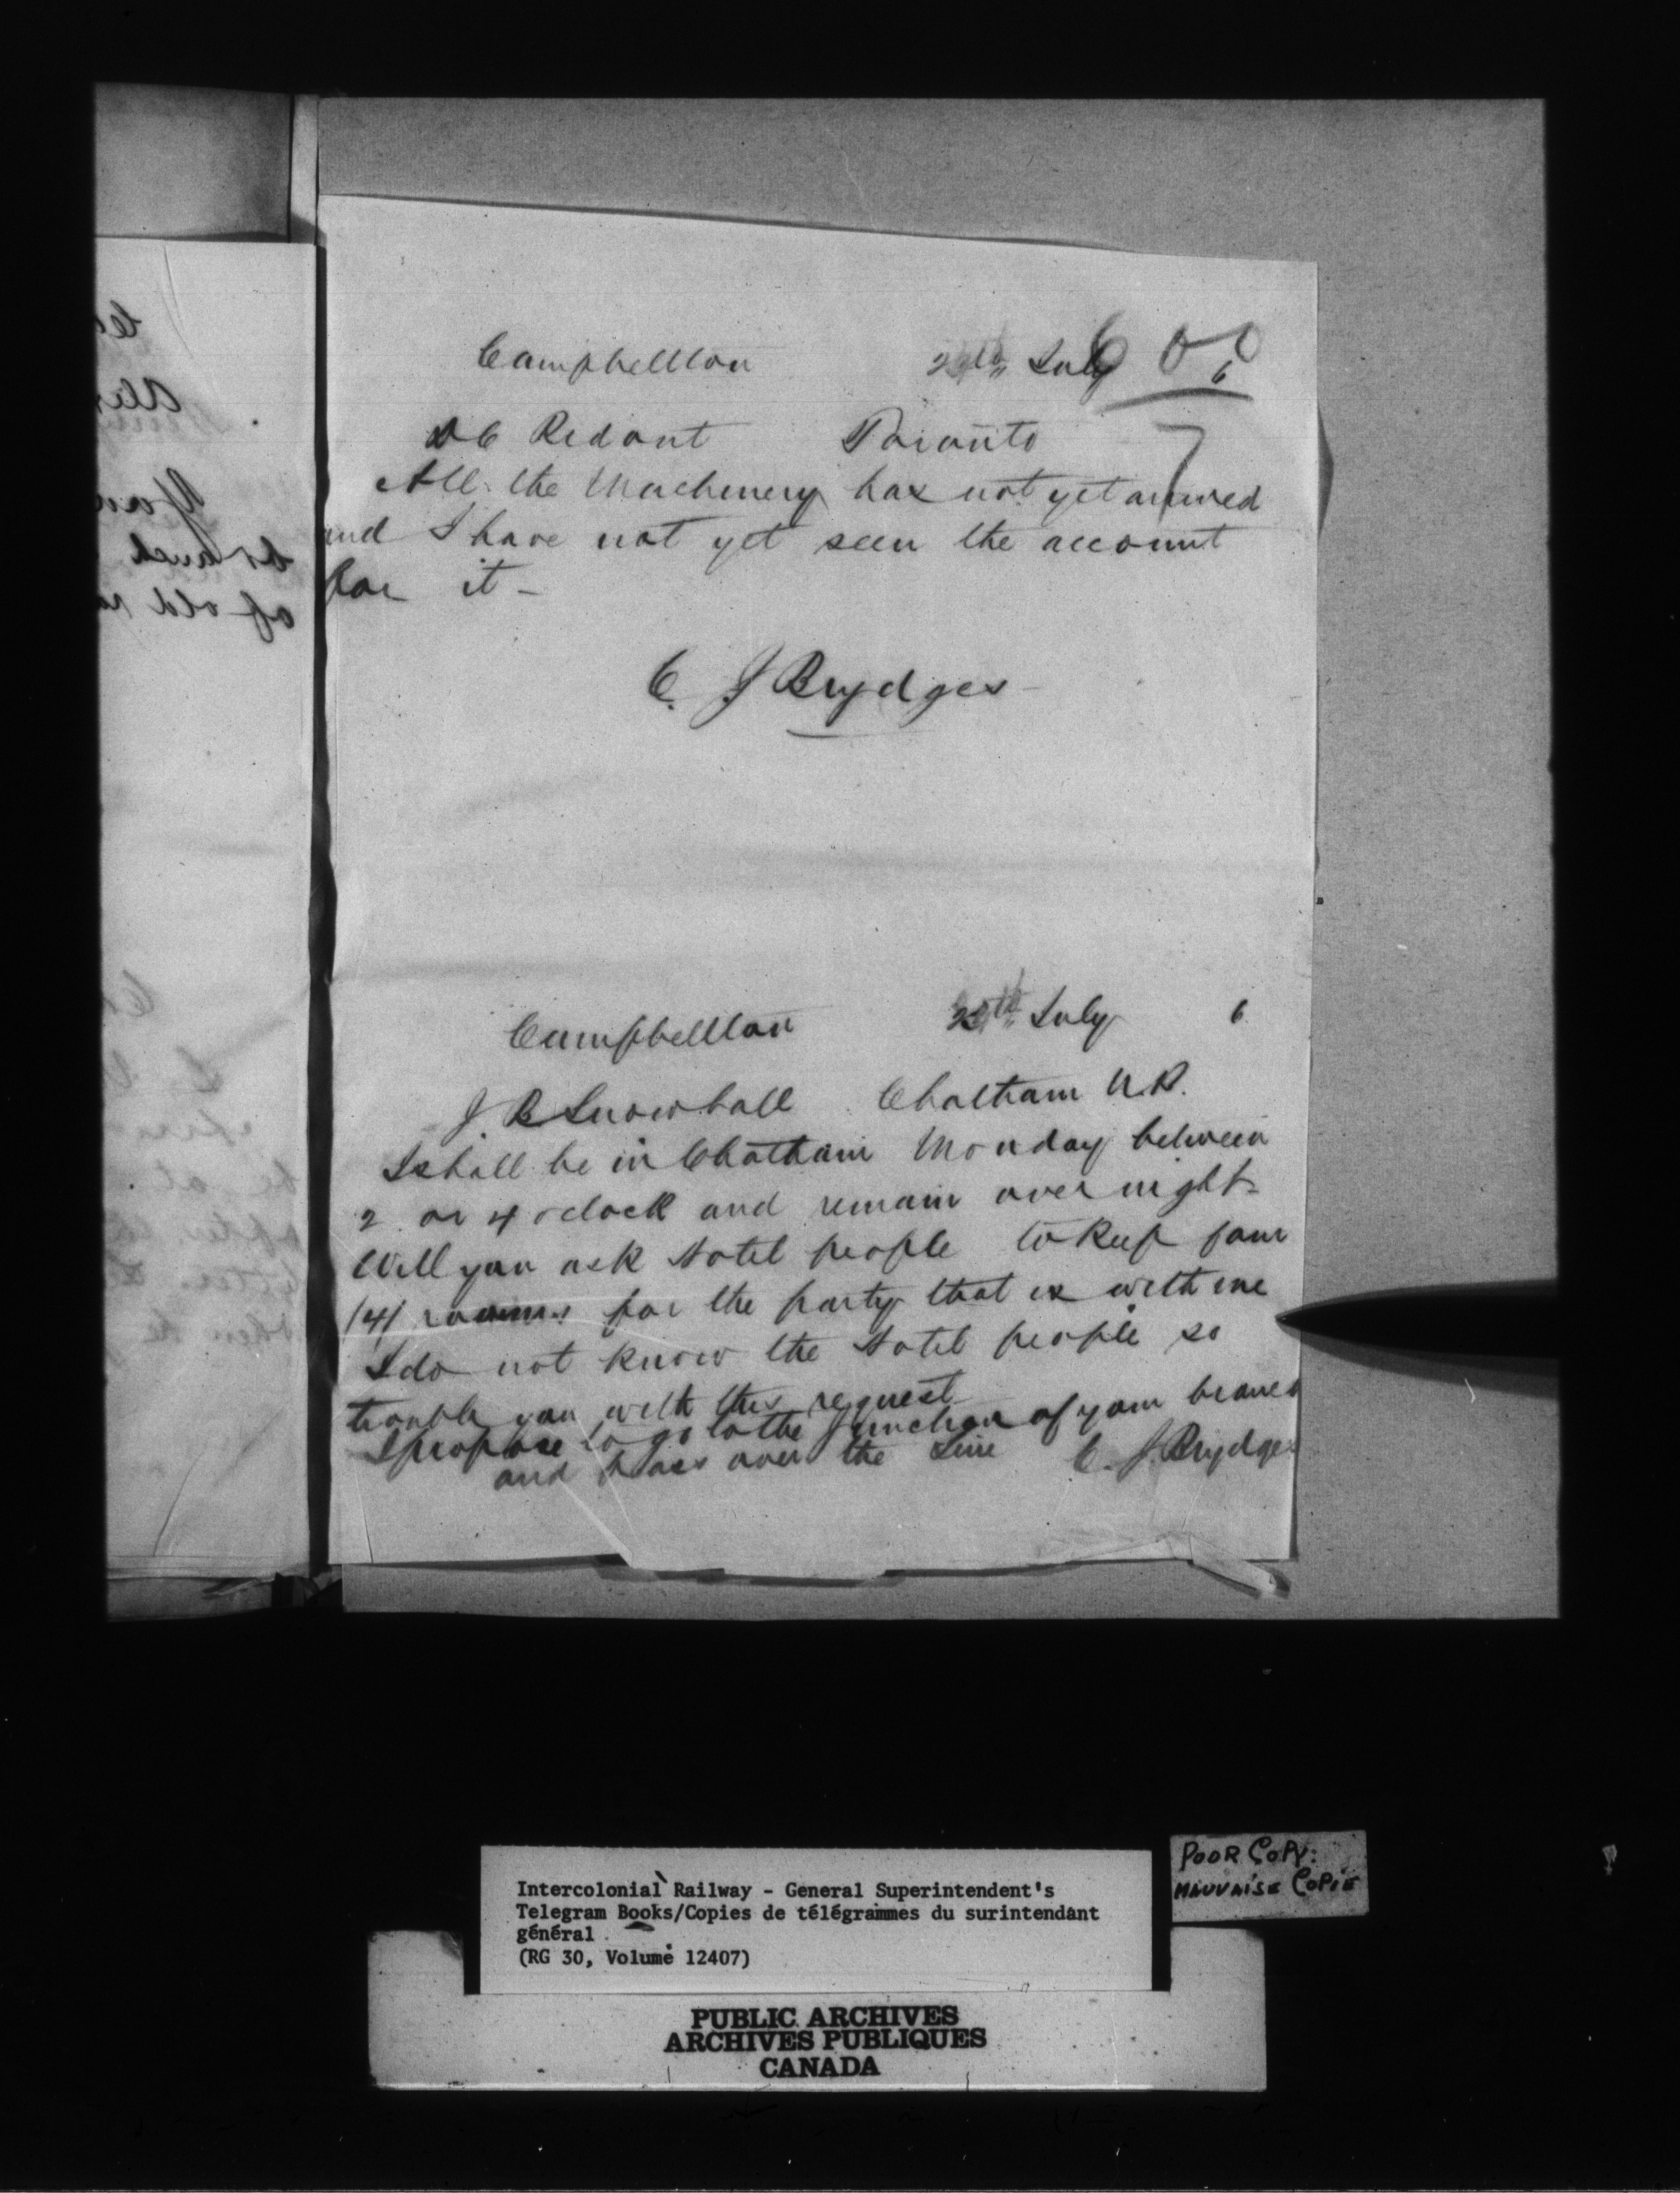 600
Campbellton July 6
DC Ridout Toronto
All the Machinery has not yet arrived
and I have not yet seen the account
for it -
C. J Brydges
Campbellton July 6
J. B Snowball Chatham N.B.
I shall be in Chatham Monday between
2 or 4 oclock and remain over night-
Will you ask Hotel people to keep four
(4) rooms for the party that is with me
I do not know the Hotel people so
trouble you with this request
I propose to go to the Junction of your branch
and pass over the Line C. J. Brydges
POOR COPY:
MAUVAISE COPIE
Intercolonial Railway - General Superintendent's
Telegram Books/Copies de télégrammes du surintendant
général
(RG 30, Volume 12407)
PUBLIC ARCHIVES
ARCHIVES PUBLIQUES
CANADA